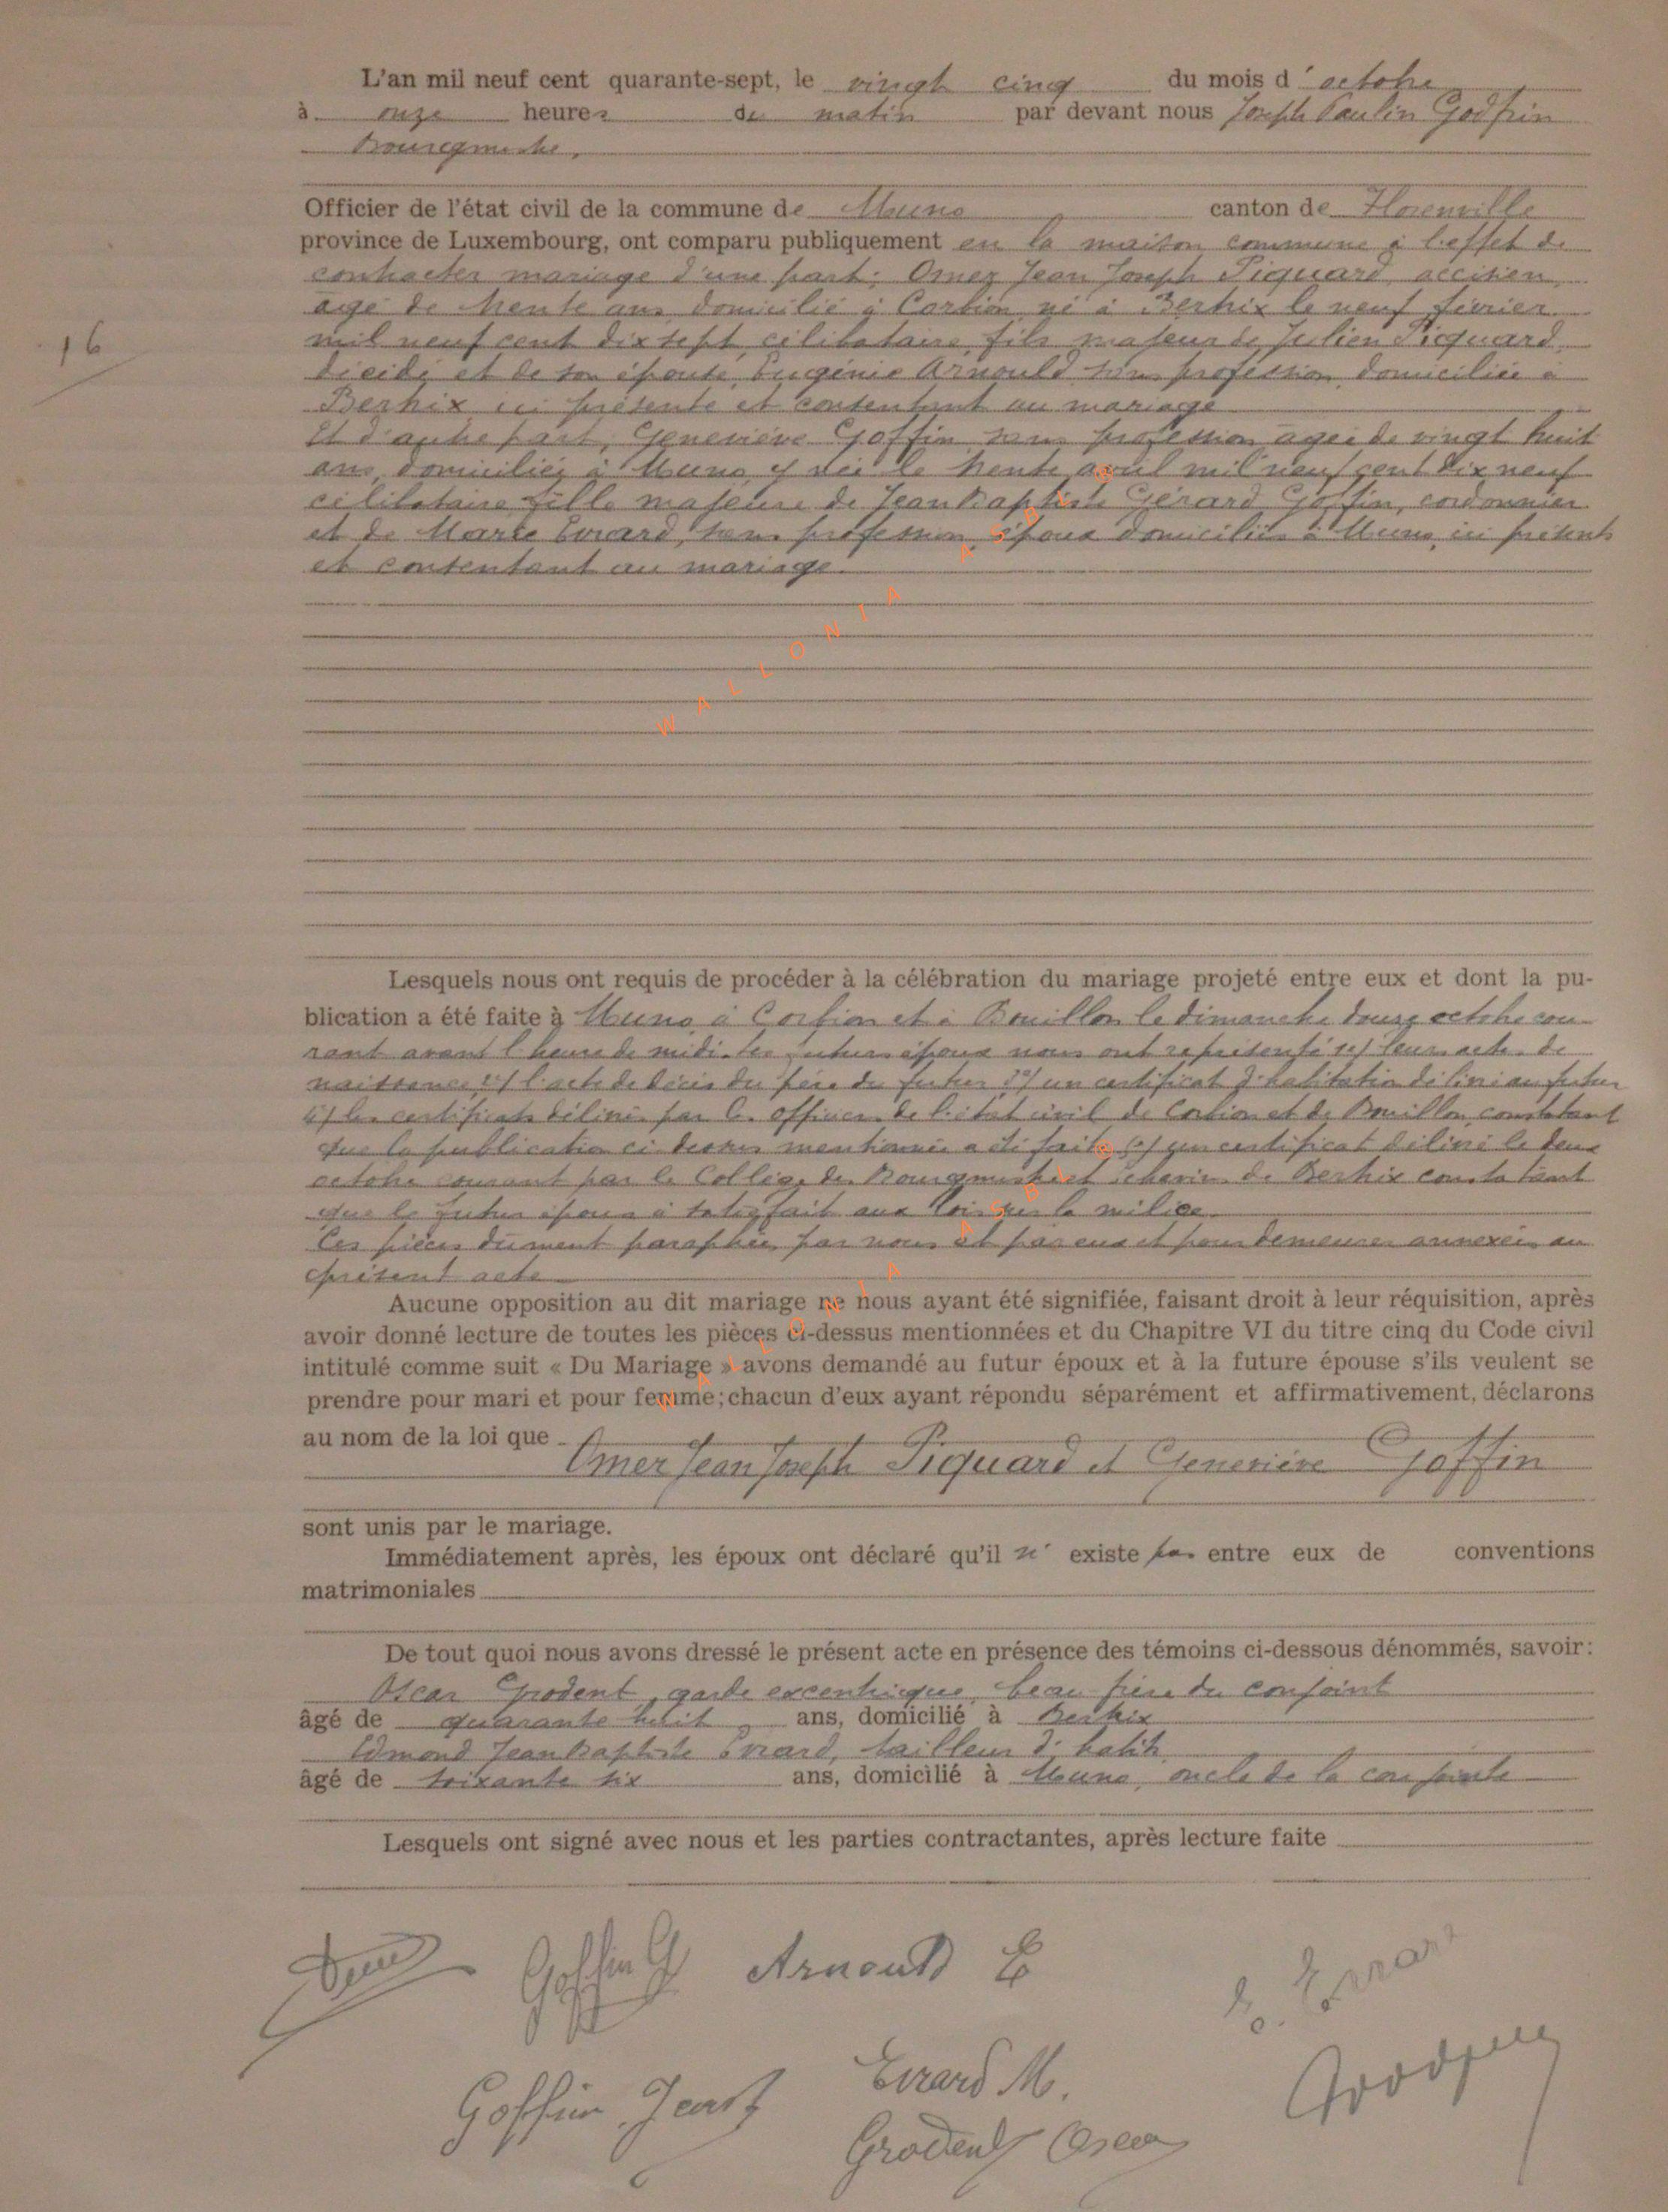 L'an mil neuf cent quarante-sept, le vingt cinq du mois d'octobre
à onze heures du matin par devant nous Joseph Paulin Godfrin
Bourgmestre,
Officier de l'état civil de la commune de Muno canton de Florenville
province de Luxembourg, ont comparu publiquement en la maison commune à l'effet de
contracter mariage d'une part: Omer Jean Joseph Piquard, accisien,
agé de trente ans domicilié à Corbion né à Bertrix le neuf février
mil neuf cent dix sept, célibataire, fils majeur de Julien Piquard,
décédé et de son épouse, Eugénie Arnould, sans profession domiciliée à
Bertrix ici présente et consentant au mariage
Et d'autre part, Geneviève Goffin sans profession agée de vingt huit
ans, domiciliée à Muno, y née le trente avril mil neuf cent dix neuf
célibataire fille majeure de Jean Baptiste Gérard Goffin, cordonnier
et de Marie Evrard, sans profession, époux domiciliés à Muno, ici présents
et consentant au mariage.
WALLONIA ASBL
Lesquels nous ont requis de procéder à la célébration du mariage projeté entre eux et dont la pu-
blication a été faite à Muno, à Corbion et à Bouillon le dimanche douze octobre cou-
rant avant l'heure de midi. Les futurs époux nous ont représenté 1°/ leurs actes de
naissance 2°/ l'acte de décès du père du futur 3°/ un certificat d'habitation délivré au futur
4°/ les certificats délivrés par les officiers de l'état civil de Corbion et de Bouillon constatant
que la publication ci dessus mentionnée a été faite 5°/ un certificat délivré le deux
octobre courant par le Collège des Bourgmestre et échevins de Bertrix constatant
que le futur époux a satisfait aux lois sur la milice.
Ces pièces dûment paraphées par nous et par eux et pour demeurer annexées au
présent acte
Aucune opposition au dit mariage ne nous ayant été signifiée, faisant droit à leur réquisition, après
avoir donné lecture de toutes les pièces ci-dessus mentionnées et du Chapitre VI du titre cinq du Code civil
intitulé comme suit « Du Mariage » avons demandé au futur époux et à la future épouse s'ils veulent se
prendre pour mari et pour femme; chacun d'eux ayant répondu séparément et affirmativement, déclarons
au nom de la loi que
Omer Jean Joseph Piquard et Geneviève Goffin
sont unis par le mariage.
Immédiatement après, les époux ont déclaré qu'il n' existe pas entre eux de conventions
matrimoniales
De tout quoi nous avons dressé le présent acte en présence des témoins ci-dessous dénommés, savoir:
Oscar Grodent, garde excentrique, beau-frère du conjoint
âgé de quarante huit ans, domicilié à Bertrix
Edmond Jean Baptiste Evrard, tailleur d'habits
âgé de soixante six ans, domicilié à Muno, oncle de la conjointe
Lesquels ont signé avec nous et les parties contractantes, après lecture faite
16
Goffin G Arnould E
E. Evrard
Goffin Jean Evrard M.
Grodent Oscar